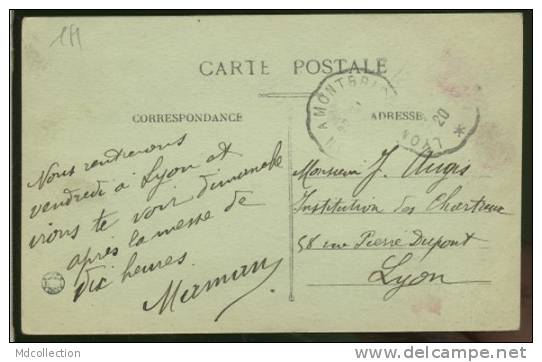 CARTE POSTALE
CORRESPONDANCE
ADRESSE
LYON
20
Nous rentrerons
vendredi à Lyon et
irons te voir dimanche
après la messe de
dix heures.
Maman
Monsieur J.
Institution des Chartreux
58 rue Pierre Dupont
Lyon
Mdcollection
www.delcampe.net